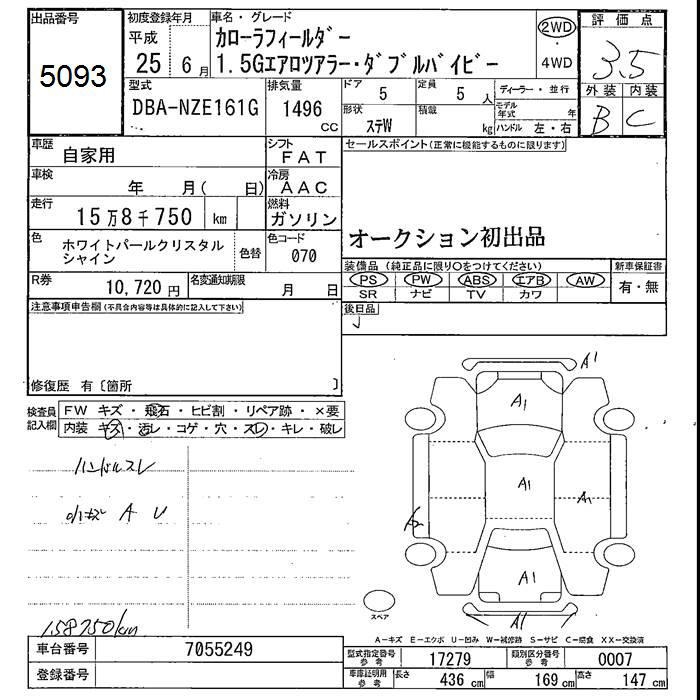 出品番号
5093
初度登録年月
平成
25 6月
車名・グレード
カローラフィールダー
1.5Gエアロツアラー・ダブルバイビー
2WD
4WD
評価点
3.5
外装 内装
B C
型式
DBA-NZE161G
排気量
1496 cc
ドア 5
定員 5 人
形状 ステW
積載 kg
ディーラー・並行
モデル年式 年
ハンドル 左・右
車歴 自家用
シフト FAT
車検 年 月( 日)
冷房 AAC
走行 15万8千750 km
燃料 ガソリン
色 ホワイトパールクリスタル
シャイン
色替
色コード 070
R券 10,720 円
名変通知期限 月 日
セールスポイント(正常に機能するものに限ります)
オークション初出品
装備品(純正品に限り○をつけてください)
PS PW ABS エアB AW
SR ナビ TV カワ
新車保証書
有・無
後日品
注意事項申告欄(不具合内容等は具体的に記入して下さい)
修復歴 有〔箇所 〕
検査員
記入欄
FW キズ・飛石・ヒビ割・リペア跡・×要
内装 キズ・汚レ・コゲ・穴・スレ・キレ・破レ
ハンドルスレ
小キズ A U
158750km
A1
A1
A1
A1
A1
A1
スペア
A-キズ E-エクボ U-凹み W-補修跡 S-サビ C-腐食 XX-交換済
車台番号 7055249
登録番号
型式指定番号
参考
17279
類別区分番号
参考
0007
車庫証明用
参考
長さ 436 cm 幅 169 cm 高さ 147 cm